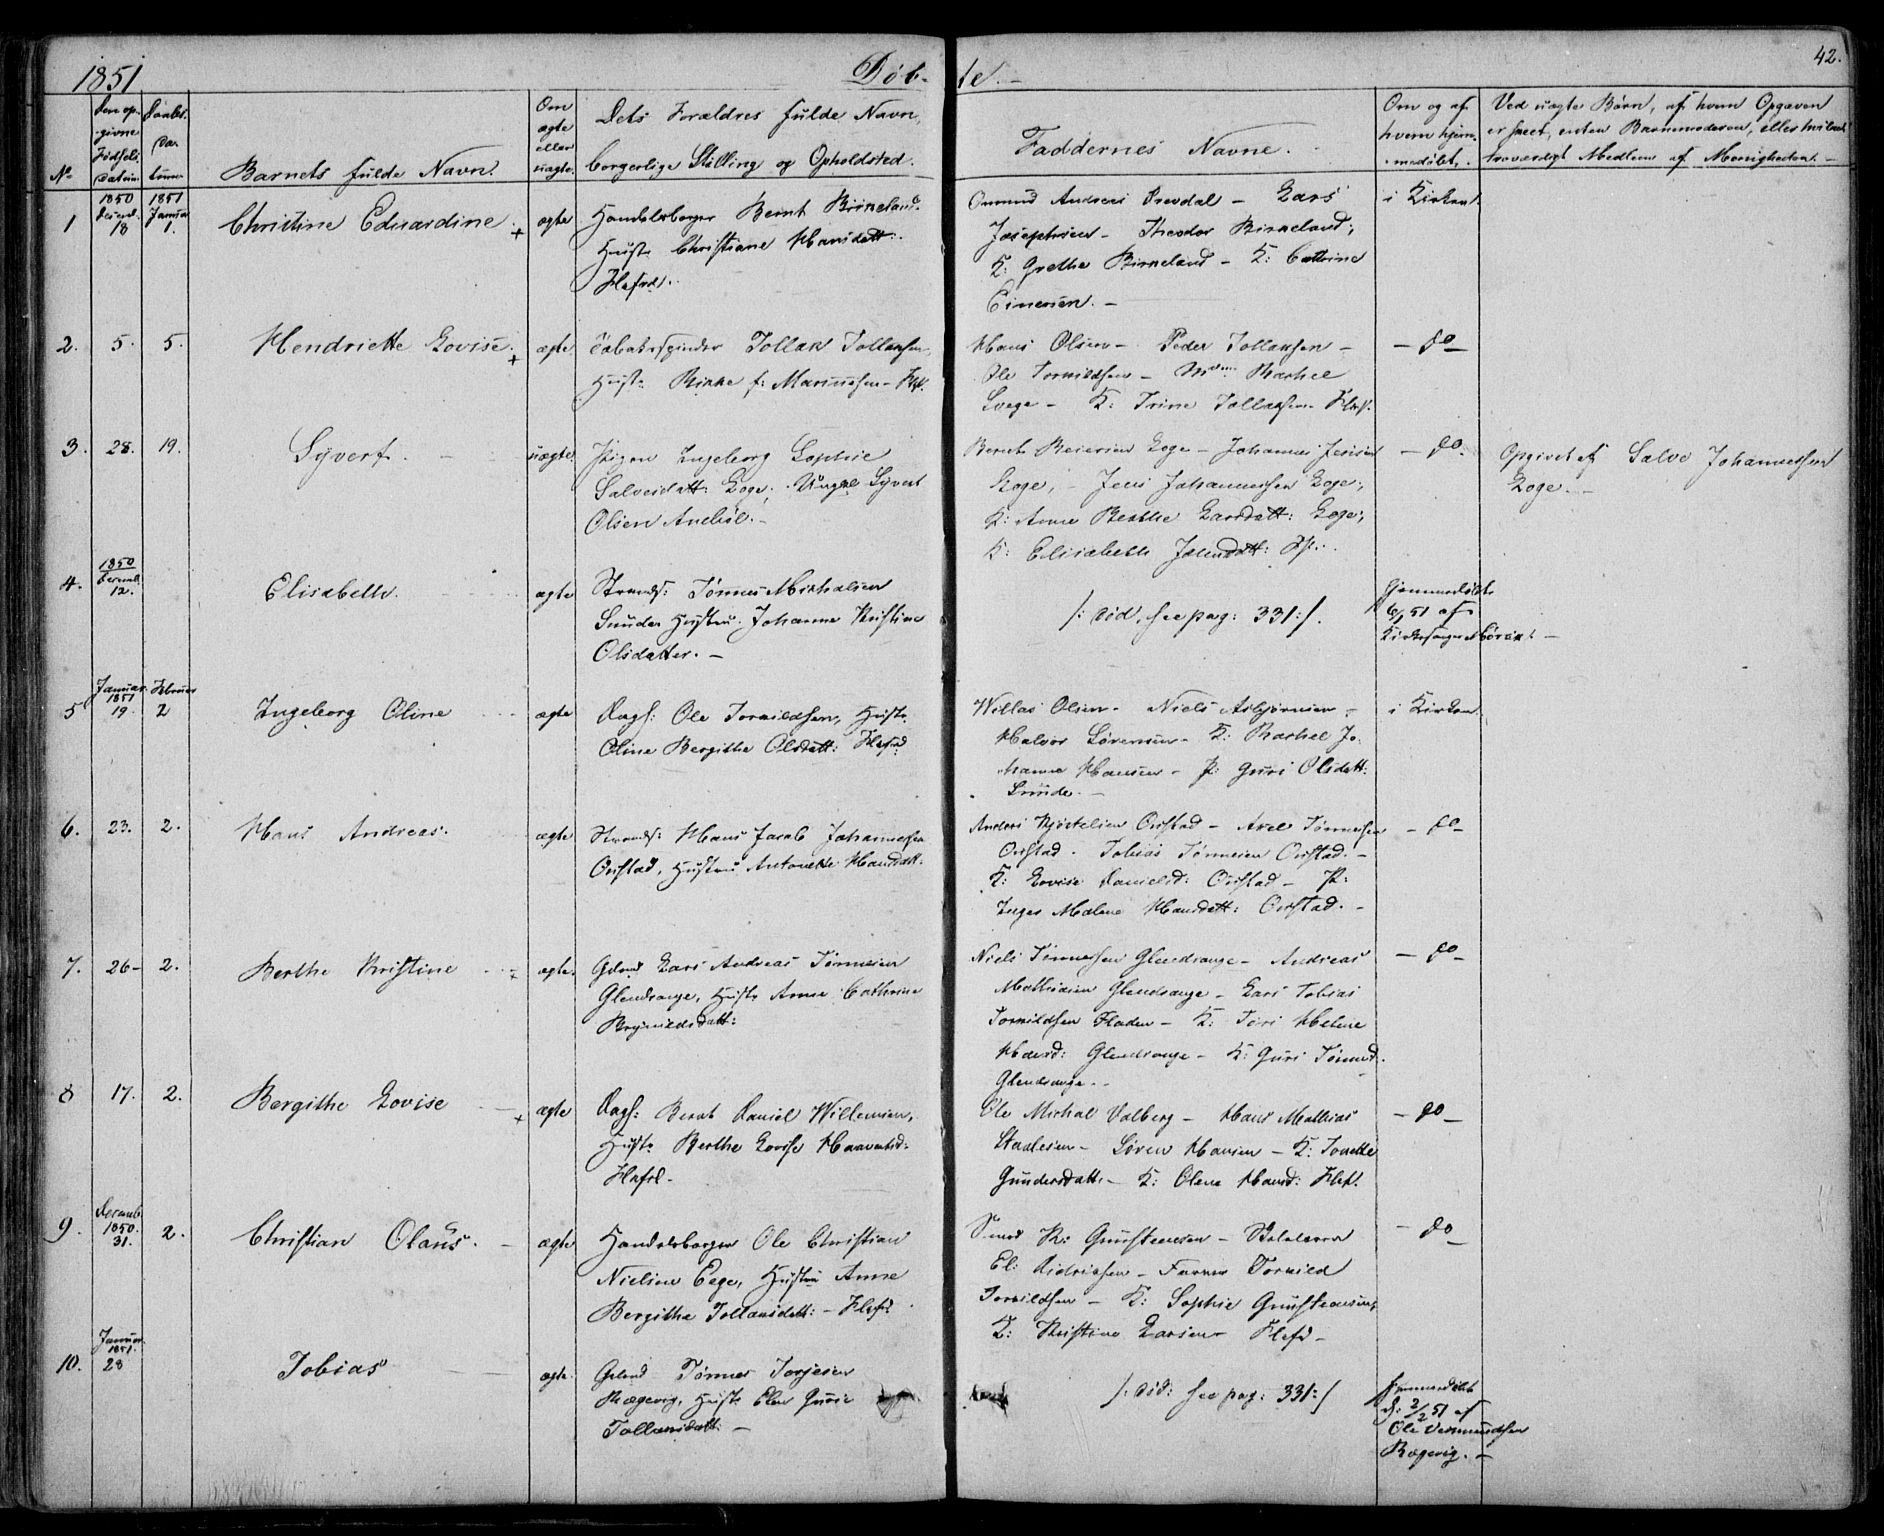 1851 Døb- te.- 42.
No
Den op-
givne
Fødsels
Datum
Daabs
Da-
tum
Barnets fulde Navn.
Om
ægte
eller
uægte
Dets Forældres fulde Navn,
borgerlige Stilling og Opholdsted.
Faddernes Navne.
Om og af
hvem hjem-
medøbt.
Ved uægte Børn, af hvem Opgaven
er skeet, enten Barnemoderen, eller
troværdigt Medlem af Menigheden.
1
1850
Decemb.
18
1851
Januar
1.
Christine Eduardine +
ægte
Handelsborger Bernt Birkeland
Hustr. Christiane Hansdatt:
Flefrd.
Ommund Andreas Drevdal - Lars
Josephsen - Theodor Birkeland;
K: Grethe Birkeland - K: Cathrine
Einersen. -
i Kirken
2. 5. 5.
Hendriette Lovise. +
ægte
Tobaksspinder Tollak Tollaksen
Hustr. Rikke f: Marcussen - Flef.
Hans Olsen - Peder Tollaksen -
Ole Torkildsen - Mdm Rachel
Svege - K: Trine Tollaksen - Flef.
- do -
3. 28. 19.
Syvert. -
uægte
Pigen Ingeborg Sophie
Salvesdatt: Loge; Ungkl Syvert
Olsen
Bernt Reiersen Loge - Johannes Jensen
Loge, - Jens Johannessen Loge;
K: Anne Berthe Larsdatt: Loge;
K: Elisabeth
- do.
Opgivet af Salve Johannessen
Loge. -
4.
1850
Decemb.
12.
Elisabeth.
ægte
Strands: Tønnes Michalsen
Sunde Hustru Johanne Kristine
Olsdatter. -
/: vid, see pag: 331:/.
Hjemmedøbt
6/1 51 af
Kirkesanger
5
Januar
1851
19.
Februar
2
Ingeborg Oline
ægte
Dags: Ole Torkildsen, Hustr.
Oline Bergithe Olsdatt: Flefrd
Willas Olsen - Niels Asbjørnsen -
Halvor Sørensen - K: Rachel Jo-
hanne Hansen - P: Guri Olsdatt:
Sunde. -
i Kirken
6. 23. 2.
Hans Andreas.
ægte
Strands: Hans Jacob Johannessen
Osestad, Hustru Antonette Hansdatt:
Anders Kjøstelsen Osestad - Axel Tønnessen
Osestad - Tobias Tønnesen Osestad. -
K: Lovise Danielsd: Osestad - P:
Inger Malene Hansdatt: Osestad. -
- do -
7. 26- 2.
Berthe Kristine +
ægte.
Gdmd Lars Andreas Tønnesen
Glendrange, Hustr Anne Cathrine
Reynildsdatt:
Niels Tønnessen Glendrange - Andreas
Mathiasen Glendrange - Lars Tobias
Torkildsen Fladen - K: Tori Helene
Hansd: Glendrange - K: Guri Tønnesd.
Glendrange. -
- do -
8 17. 2.
Bergithe Lovise +
ægte
Dags: Bernt Daniel Willumsen,
Hustr Berthe Lovise
Flefrd. -
Ole Michal Valberg - Hans Mathias
Staalesen - Søren Hansen - K: Tonette
Gundersdatt. - K: Olene Hansd: Flef.
- do -
9.
Decemb.
1850.
31.
2.
Christian Olaus. -
ægte
Handelsborger Ole Christian
Nielsen Eege, Hustru Anne
Bergitha Tollaksdatt: - Flefrd.
Smed K: Gundstensen -
El: Didriksen - Farver Torkild
Torkildsen - K: Sophie Gundstensen,
K: Kristine Larsen - Flefd -
- do -
10.
Januar
1851.
28
Tobias
ægte.
Gdmd Tønnes Torjesen
Rægevig, Hustr. Elen Gurie
Tollaksdatt: -
/: vid: see pag: 331:/
Hjemmedøbt
d: 2/2 51 af
Ole Vermundsen
Rægevig. -